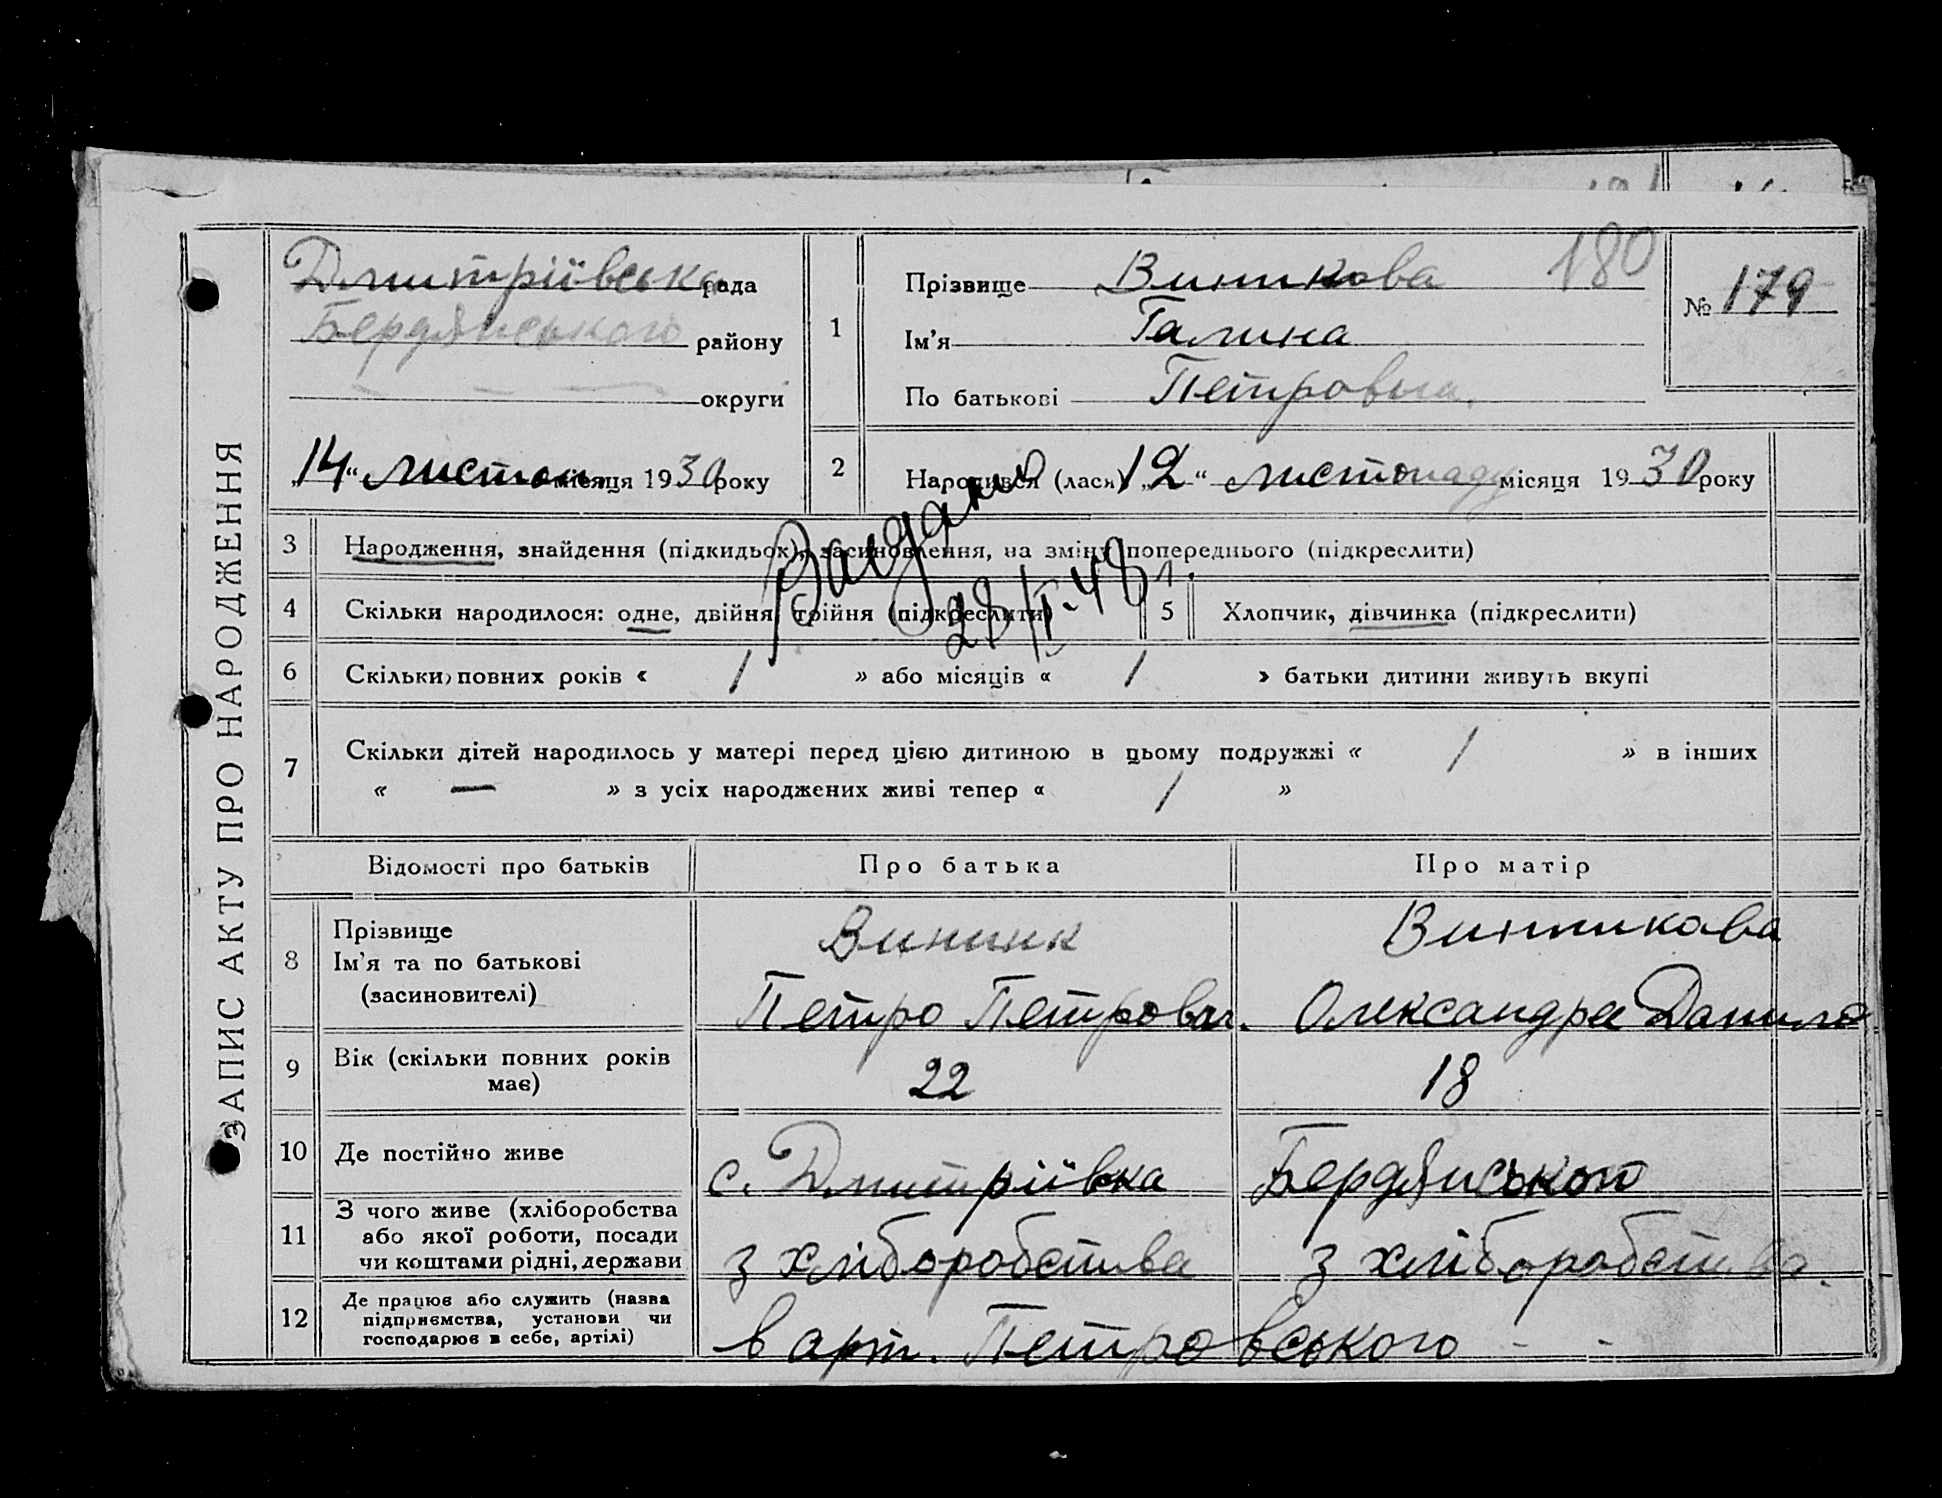 ЗАПИС АКТУ ПРО НАРОДЖЕННЯ
Дмитріївська рада
Бердянського району
округи
„14“ листоп. місяця 1930 року
180
№ 179
1
Прізвище Виникова
Ім'я Галина
По батькові Петровна
2
Народився (лася) „12“ листопаду місяця 1930 року
3 Народження, знайдення (підкидьок), засиновлення, на зміну попереднього (підкреслити)
4 Скільки народилося: одне, двійня, трійня (підкреслити)
5 Хлопчик, дівчинка (підкреслити)
28/І-48
6 Скільки повних років « / » або місяців « / » батьки дитини живуть вкупі
7 Скільки дітей народилось у матері перед цією дитиною в цьому подружжі « / » в інших
« — » з усіх народжених живі тепер « / »
Відомості про батьків Про батька Про матір
8 Прізвище
Ім'я та по батькові
(засиновителі)
Виник
Петро Петрович.
Винникова
Олександра Данило
9 Вік (скільки повних років
має)
22 18
10 Де постійно живе с. Дмитріївка Бердянського
11 З чого живе (хліборобства
або якої роботи, посади
чи коштами рідні, держави
з хліборобства з хліборобства.
12 Де працює або служить (назва
підприємства, установи чи
господарює в себе, артілі)
в арт. Петровського - -